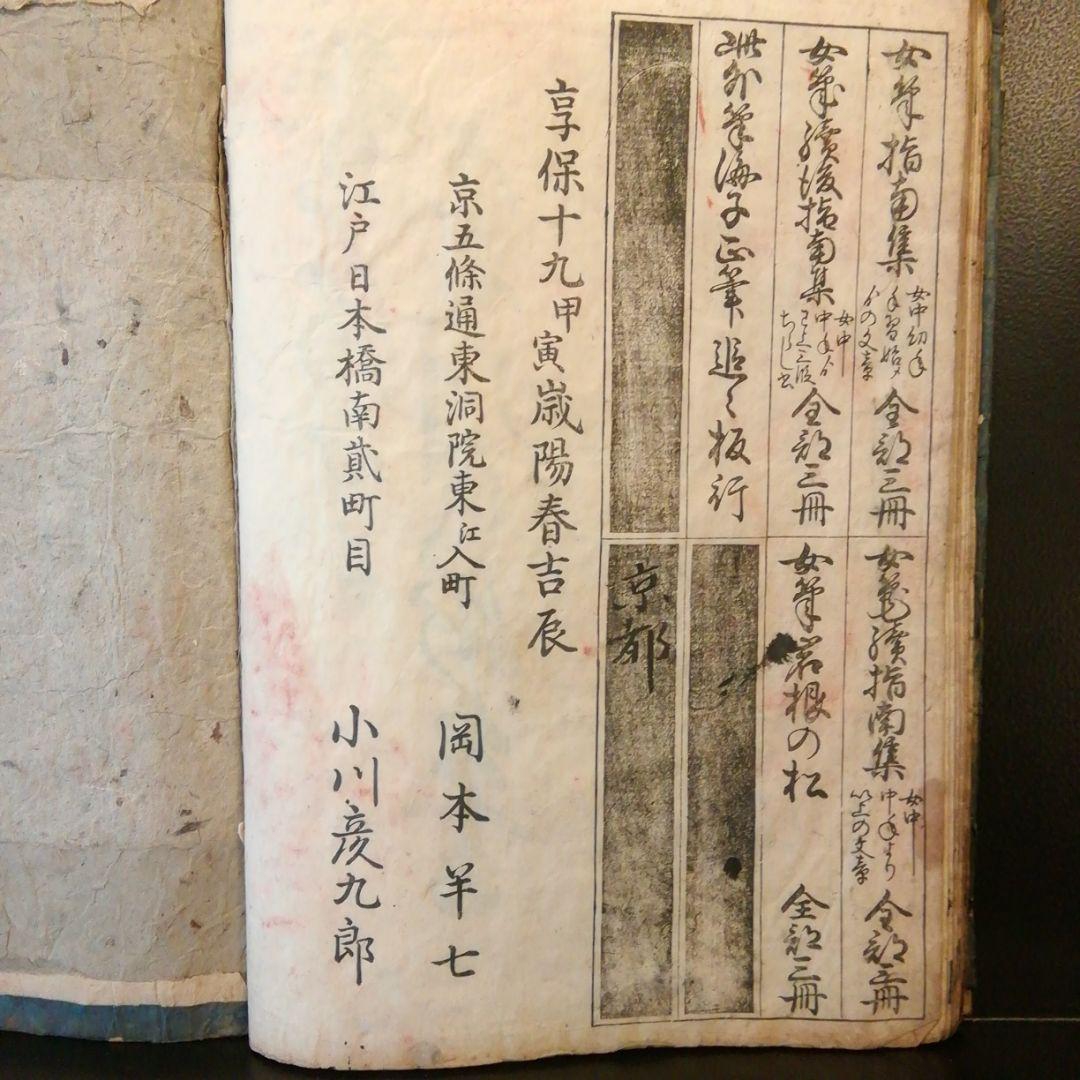 女筆指南集
女中幼年
手習始め
よりの文章
全部三冊
女筆續指南集
女中
中年より
以上の文章
全部三冊
女筆續後指南集
女中
中年より
ちらし書
全部三冊
女筆岩根の松
全部三冊
此外筆海子正筆追々板行
京都
享保十九甲寅歳陽春吉辰
京五條通東洞院東江入町
岡本半七
江戸日本橋南貳町目
小川彦九郎